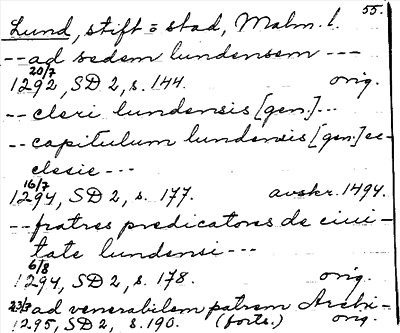 55.
Lund, stift = stad, Malm. l.
-- ad sedem lundensem ---
20/7
1292, SD 2, s. 144. orig.
-- cleri lundensis [gen.]--
-- capitulum lundensis [gen.] ec-
clesie ---
16/7
1294, SD 2, s. 177. avskr. 1494.
-- fratres predicatores de ciui-
tate lundensi ---
6/8
1294, SD 2, s. 178. orig.
23/3 ad venerabilem patrem Archi-
1295, SD 2, s. 190. (forts.) orig.